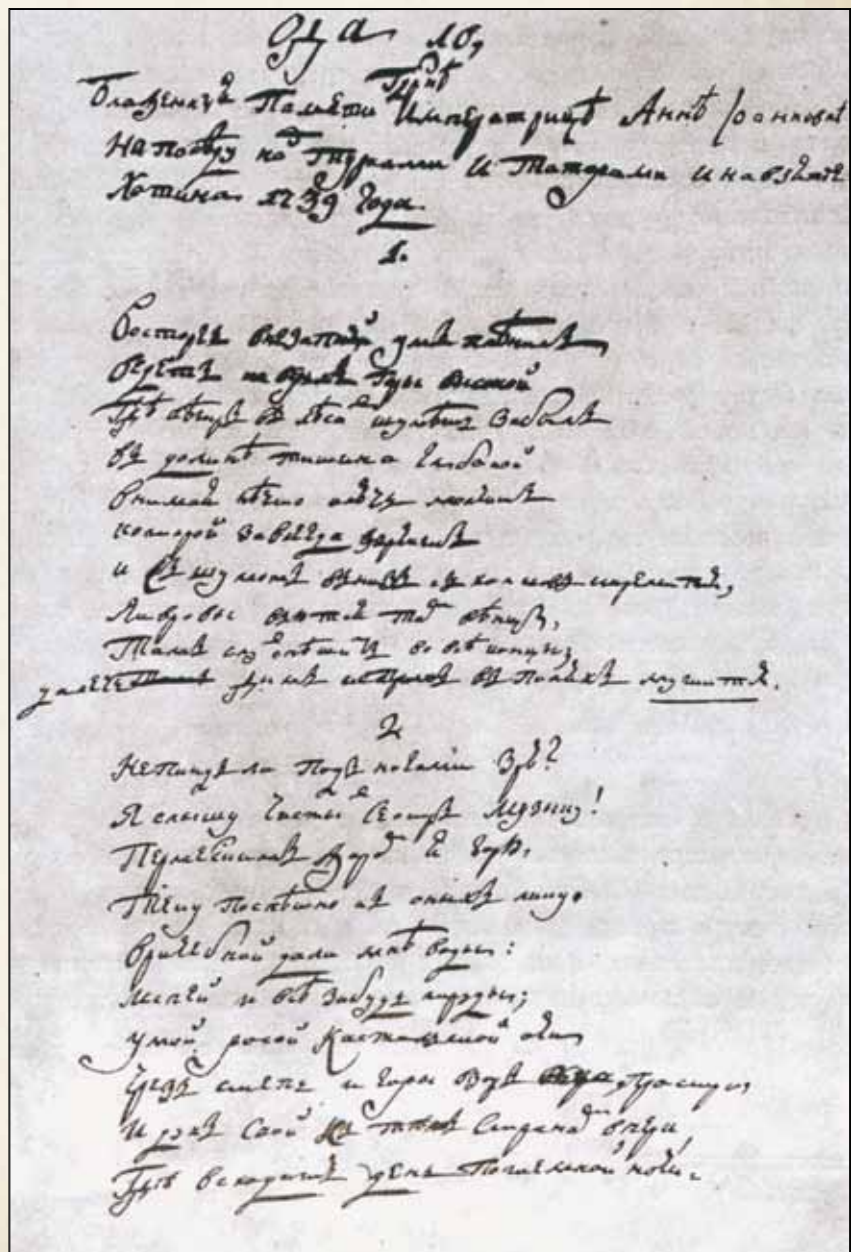 Ода 10,
Блаженныя Памяти Гдрнѣ Императрицѣ Аннѣ Іоанновнѣ
На побѣду надъ Турками и Татарами и на взятіе
Хотина 1739 года.
1.
Восторгъ внезапный умъ плѣнилъ,
Ведетъ на верьхъ горы высокой
Гдѣ вѣтръ въ лѣсахъ шумѣть забылъ
Въ долинѣ тишина глубокой
Внимая нѣчто ключь молчитъ
Которой завсегда журчитъ
И съ шумомъ внизъ съ холмовъ стремится,
Лавровы вьются тамъ вѣнцы,
Тамъ слухъ спѣшитъ во всѣ концы;
далече дымъ въ поляхъ курится.
2
Не Пиндъ ли подъ ногами зрю?
Я слышу чистыхъ сестръ музыку!
Пермесскимъ жаромъ я горю,
Теку поспѣшно къ оныхъ лику.
Врачебной дали мнѣ воды:
Испей и всѣ забудь труды;
умой росой Кастальской очи
Чрезъ степь и горы взоръ простри
И духъ свой къ тѣмъ странамъ впери,
Гдѣ всходитъ день по темной ночи.